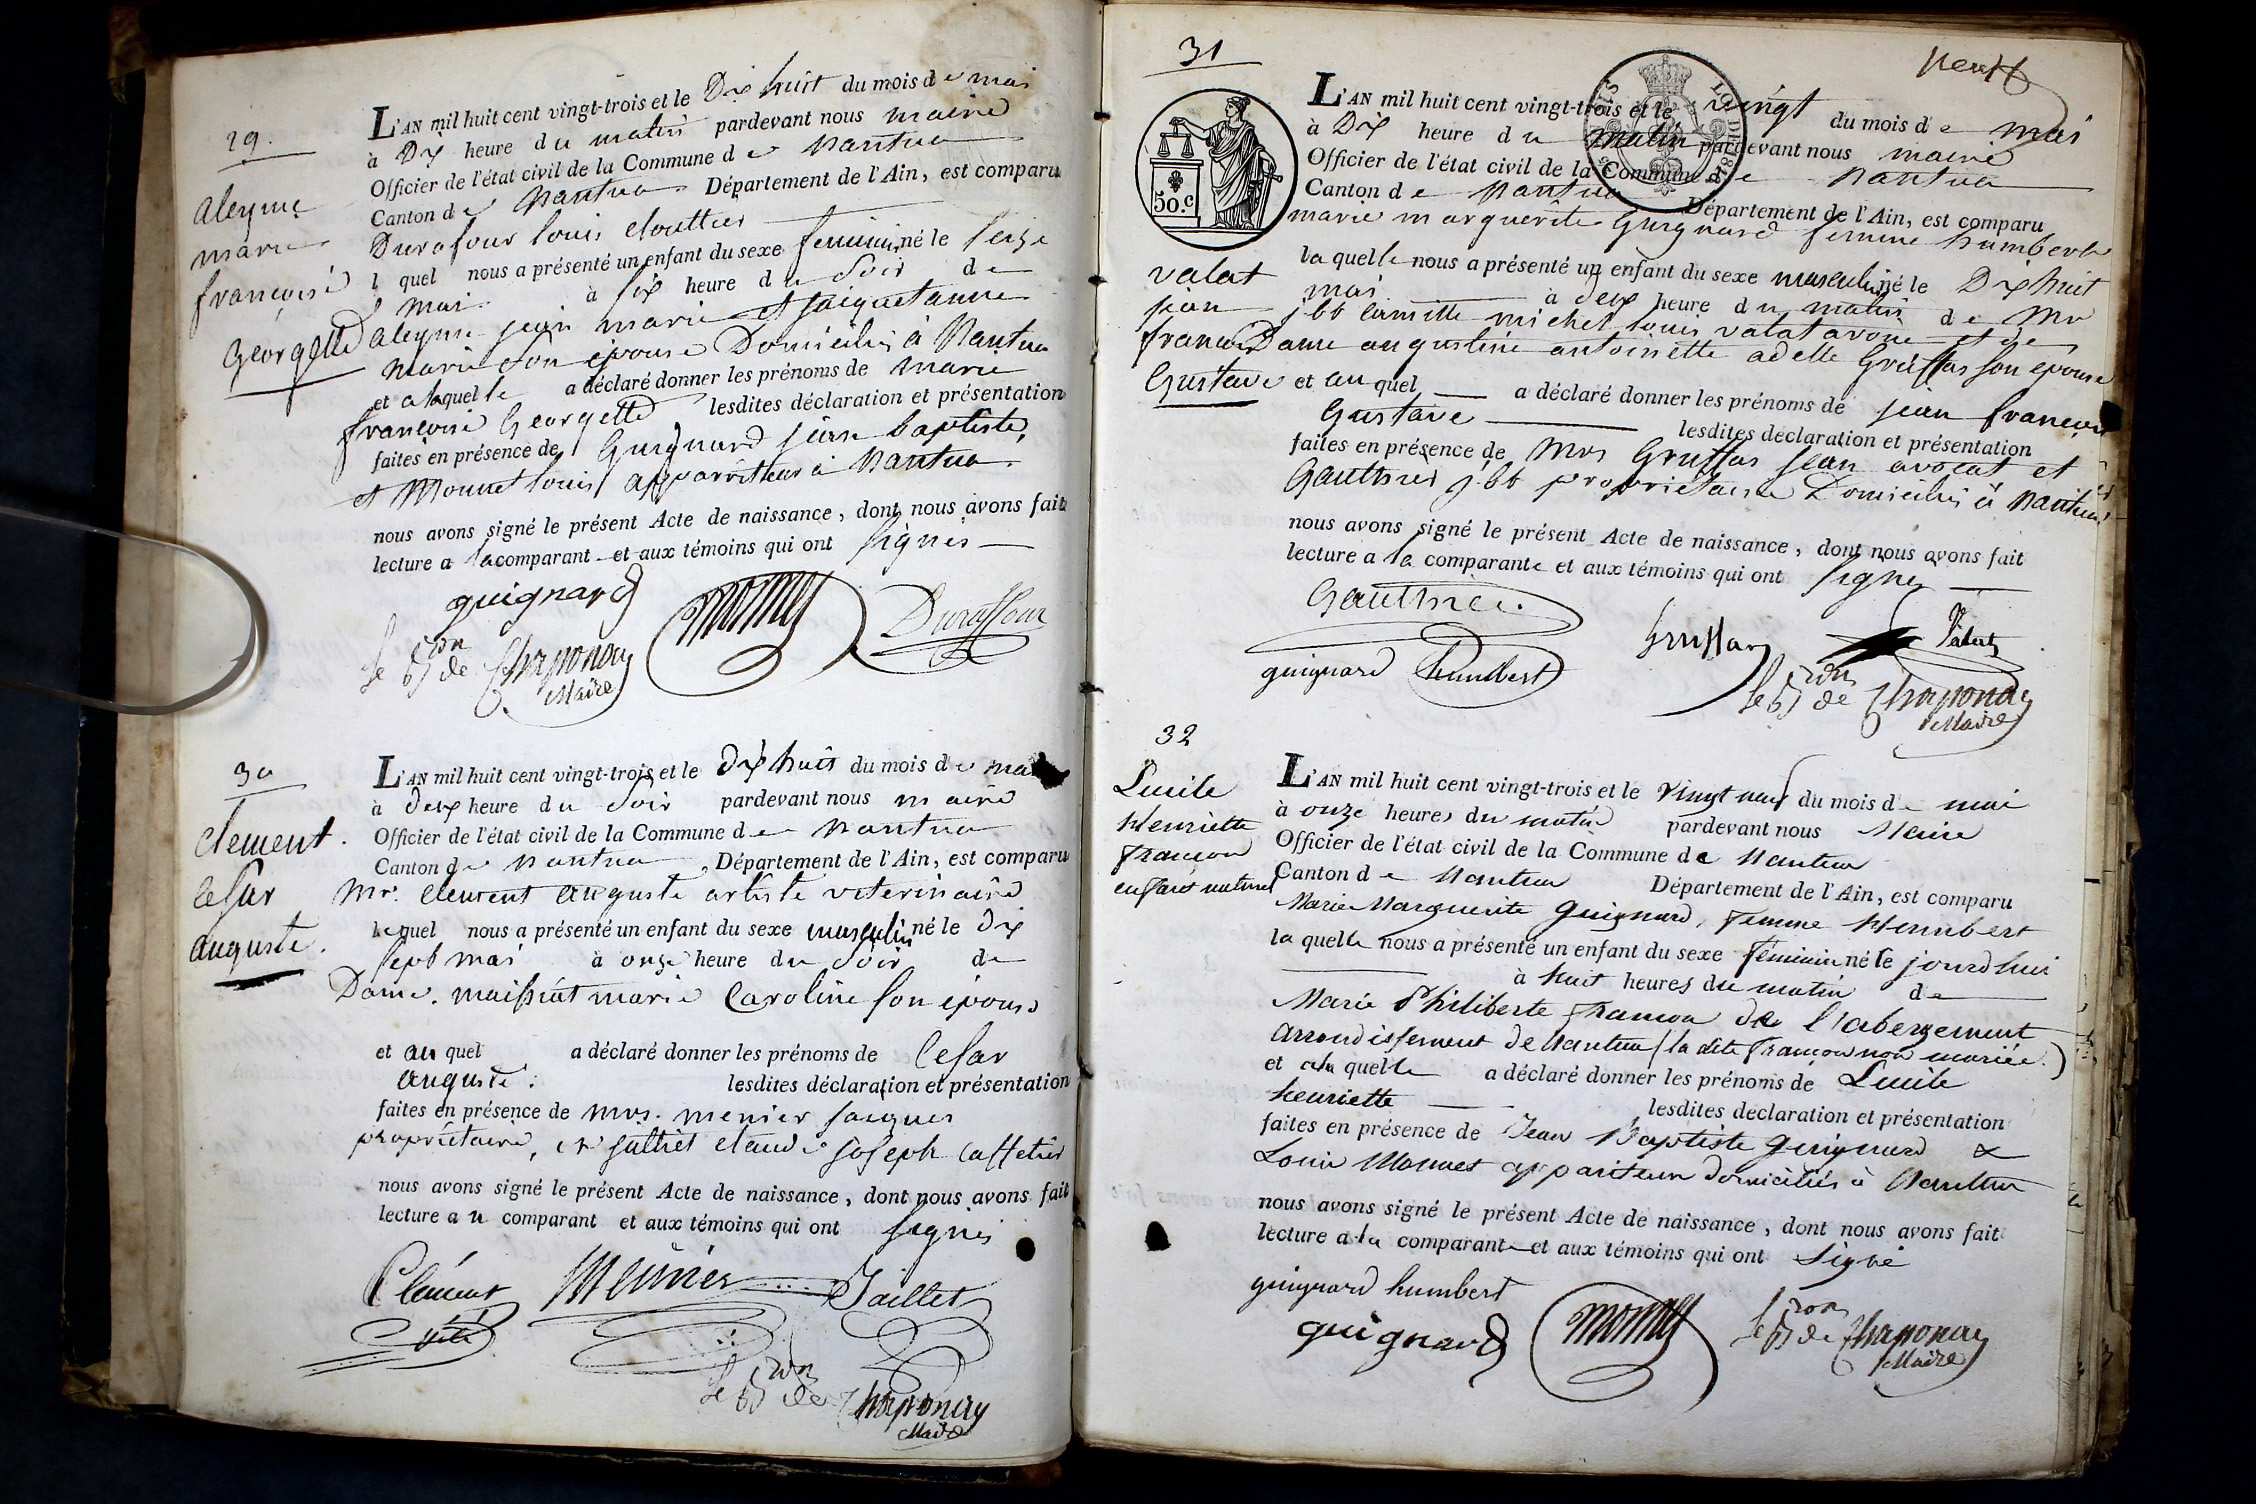 29.
aleyme
marie
françoise
Georgette
L'AN mil huit cent vingt-trois et le Dix huit du mois de mai
à Dix heure du matin pardevant nous maire
Officier de l'état civil de la Commune de Nantua
Canton de Nantua Département de l'Ain, est comparu
Durafour louis cloutier
lquel nous a présenté un enfant du sexe feminin né le seize
mai à six heure du soir de
aleyme jean marie et jaiquet anne
marie son epouse Domiciliés à Nantua
et a laquelle a déclaré donner les prénoms de marie
françoise Georgette lesdites déclaration et présentation
faites en présence de Guignard jean baptiste,
et Monnet louis appariteur à Nantua.
nous avons signé le présent Acte de naissance, dont nous avons fait
lecture a la comparant et aux témoins qui ont signés
guignard
monnet
Duraffour
le Bon de Chaponay
Maire
30
Clement.
Cesar
auguste.
L'AN mil huit cent vingt-trois et le dix huit du mois de mai
à deux heure du soir pardevant nous maire
Officier de l'état civil de la Commune de Nantua
Canton de Nantua, Département de l'Ain, est comparu
Mr. Clement auguste artiste veterinaire
lequel nous a présenté un enfant du sexe masculin né le dix
sept mai à onze heure du soir de
Dame. maissiat marie Caroline son epouse
et au quel a déclaré donner les prénoms de Cesar
auguste. lesdites déclaration et présentation
faites en présence de mrs. menier jacques
propriétaire, et jalliet claude joseph caffetier
nous avons signé le présent Acte de naissance, dont nous avons fait
lecture au comparant et aux témoins qui ont signés
Clément
vété
Menier
Jaillet
le Bon de Chaponay
Maire
31
neuf
50.C
valat
jean
francois
Gustave
L'AN mil huit cent vingt-trois et le vingt du mois de mai
à Dix heure du matin pardevant nous maire
Officier de l'état civil de la Commune de Nantua
Canton de Nantua Département de l'Ain, est comparu
marie marguerite Guignard femme humbert
la quelle nous a présenté un enfant du sexe masculin né le Dix huit
mai à deux heure du matin de Mr
jbt camille michel louis valat avoué et de
Dame augustine antoinette adelle Gruffas son epouse
et au quel a déclaré donner les prénoms de jean francois
Gustave lesdites déclaration et présentation
faites en présence de Mrs Gruffas jean avocat et
Gauthier jbt propriétaire Domiciliés à Nantua
nous avons signé le présent Acte de naissance, dont nous avons fait
lecture a la comparante et aux témoins qui ont signés
Gauthier.
Gruffas
Valat
guignard humbert
le Bon de Chaponay
Maire
32
Lucile
Henriette
françon
enfant naturel
L'AN mil huit cent vingt-trois et le vingt neuf du mois de mai
à onze heures du matin pardevant nous Maire
Officier de l'état civil de la Commune de Nantua
Canton de Nantua Département de l'Ain, est comparu
Marie Marguerite Guignard, femme Humbert
la quelle nous a présenté un enfant du sexe féminin né le jourd'hui
à huit heures du matin de
Marie Philiberte françon de l'abergement
arrondissement de Nantua (la dite françon non mariée.)
et a la quelle a déclaré donner les prénoms de Lucile
henriette lesdites declaration et présentation
faites en présence de Jean Baptiste Guignard &
Louis Monnet appariteur domiciliés à Nantua
nous avons signé le présent Acte de naissance, dont nous avons fait
lecture a la comparante et aux témoins qui ont signé
guignard humbert
guignard
monnet
le Bon de Chaponay
Maire